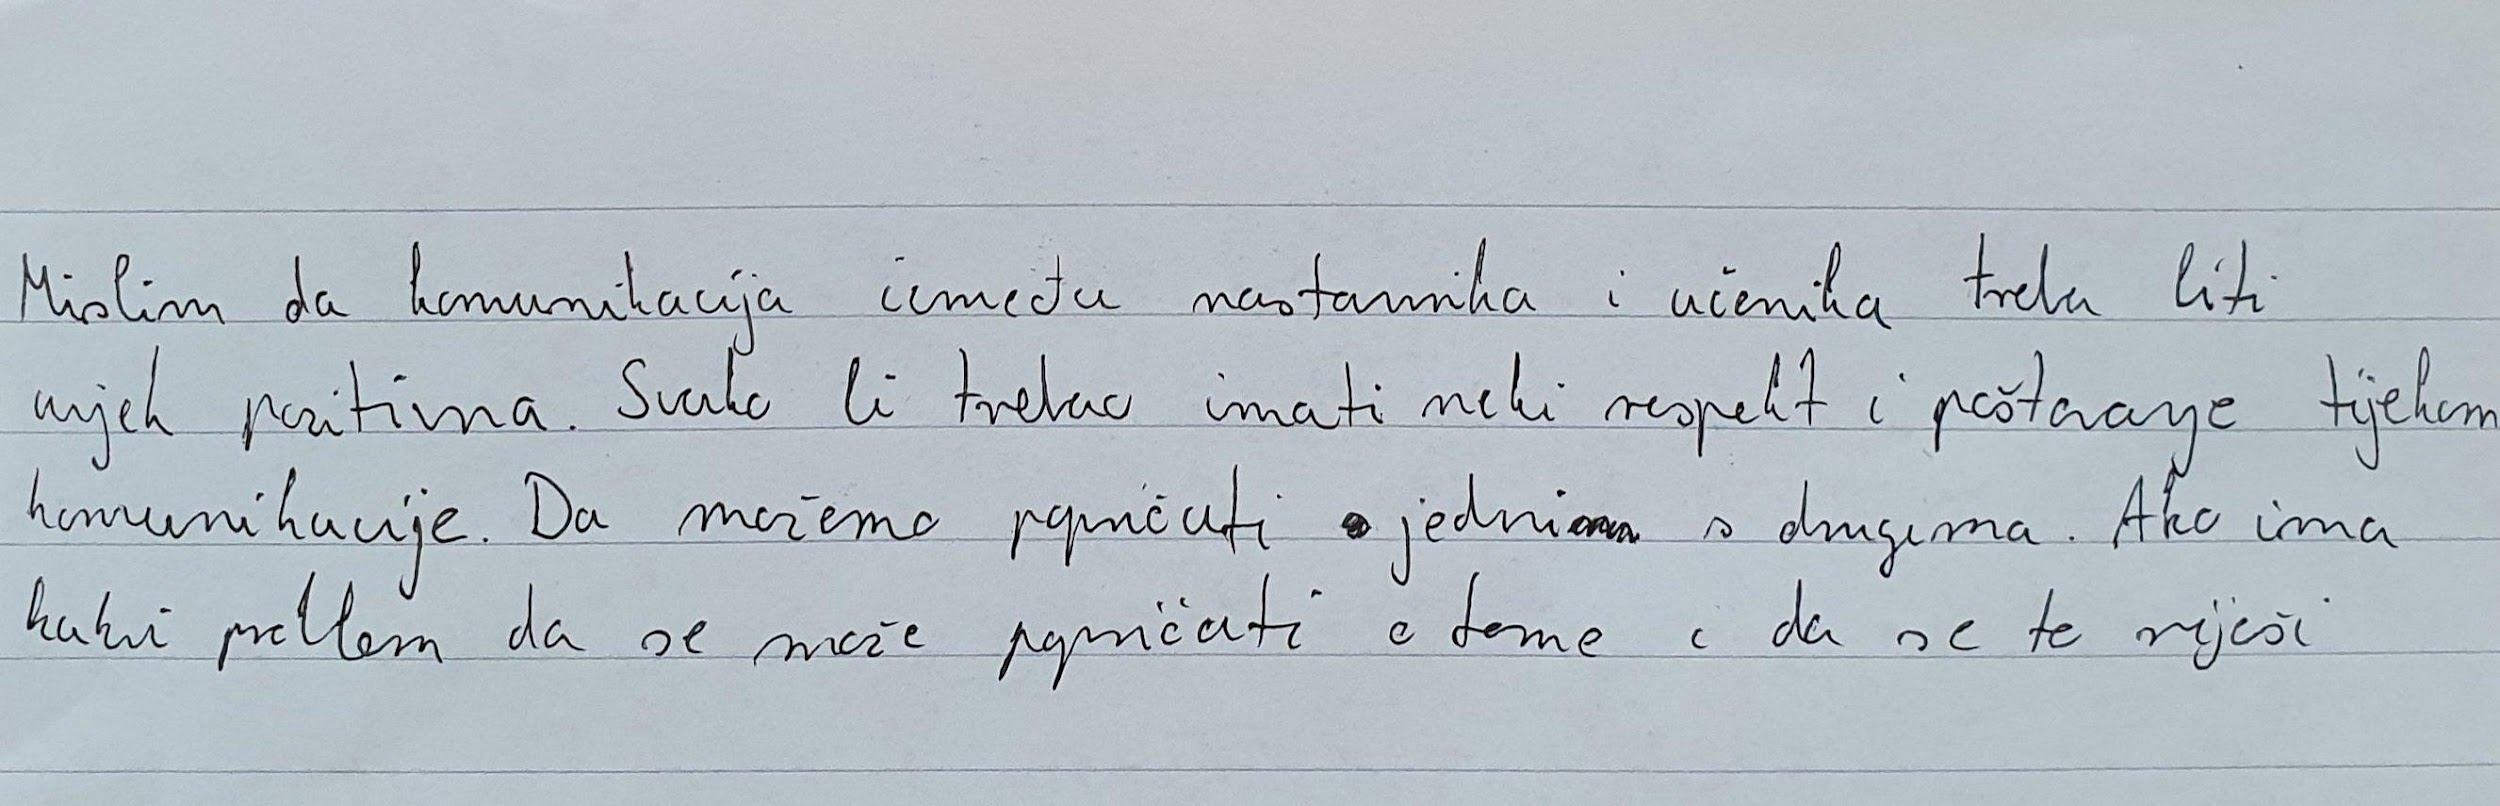 Mislim da komunikacija između nastavnika i učenika treba biti
uvijek pozitivna. Svako bi trebao imati neki respekt i poštovanje tijekom
komunikacije. Da možemo popričati jednima s drugima. Ako ima
kakvi problem da se može popričati o tome i da se to riješi